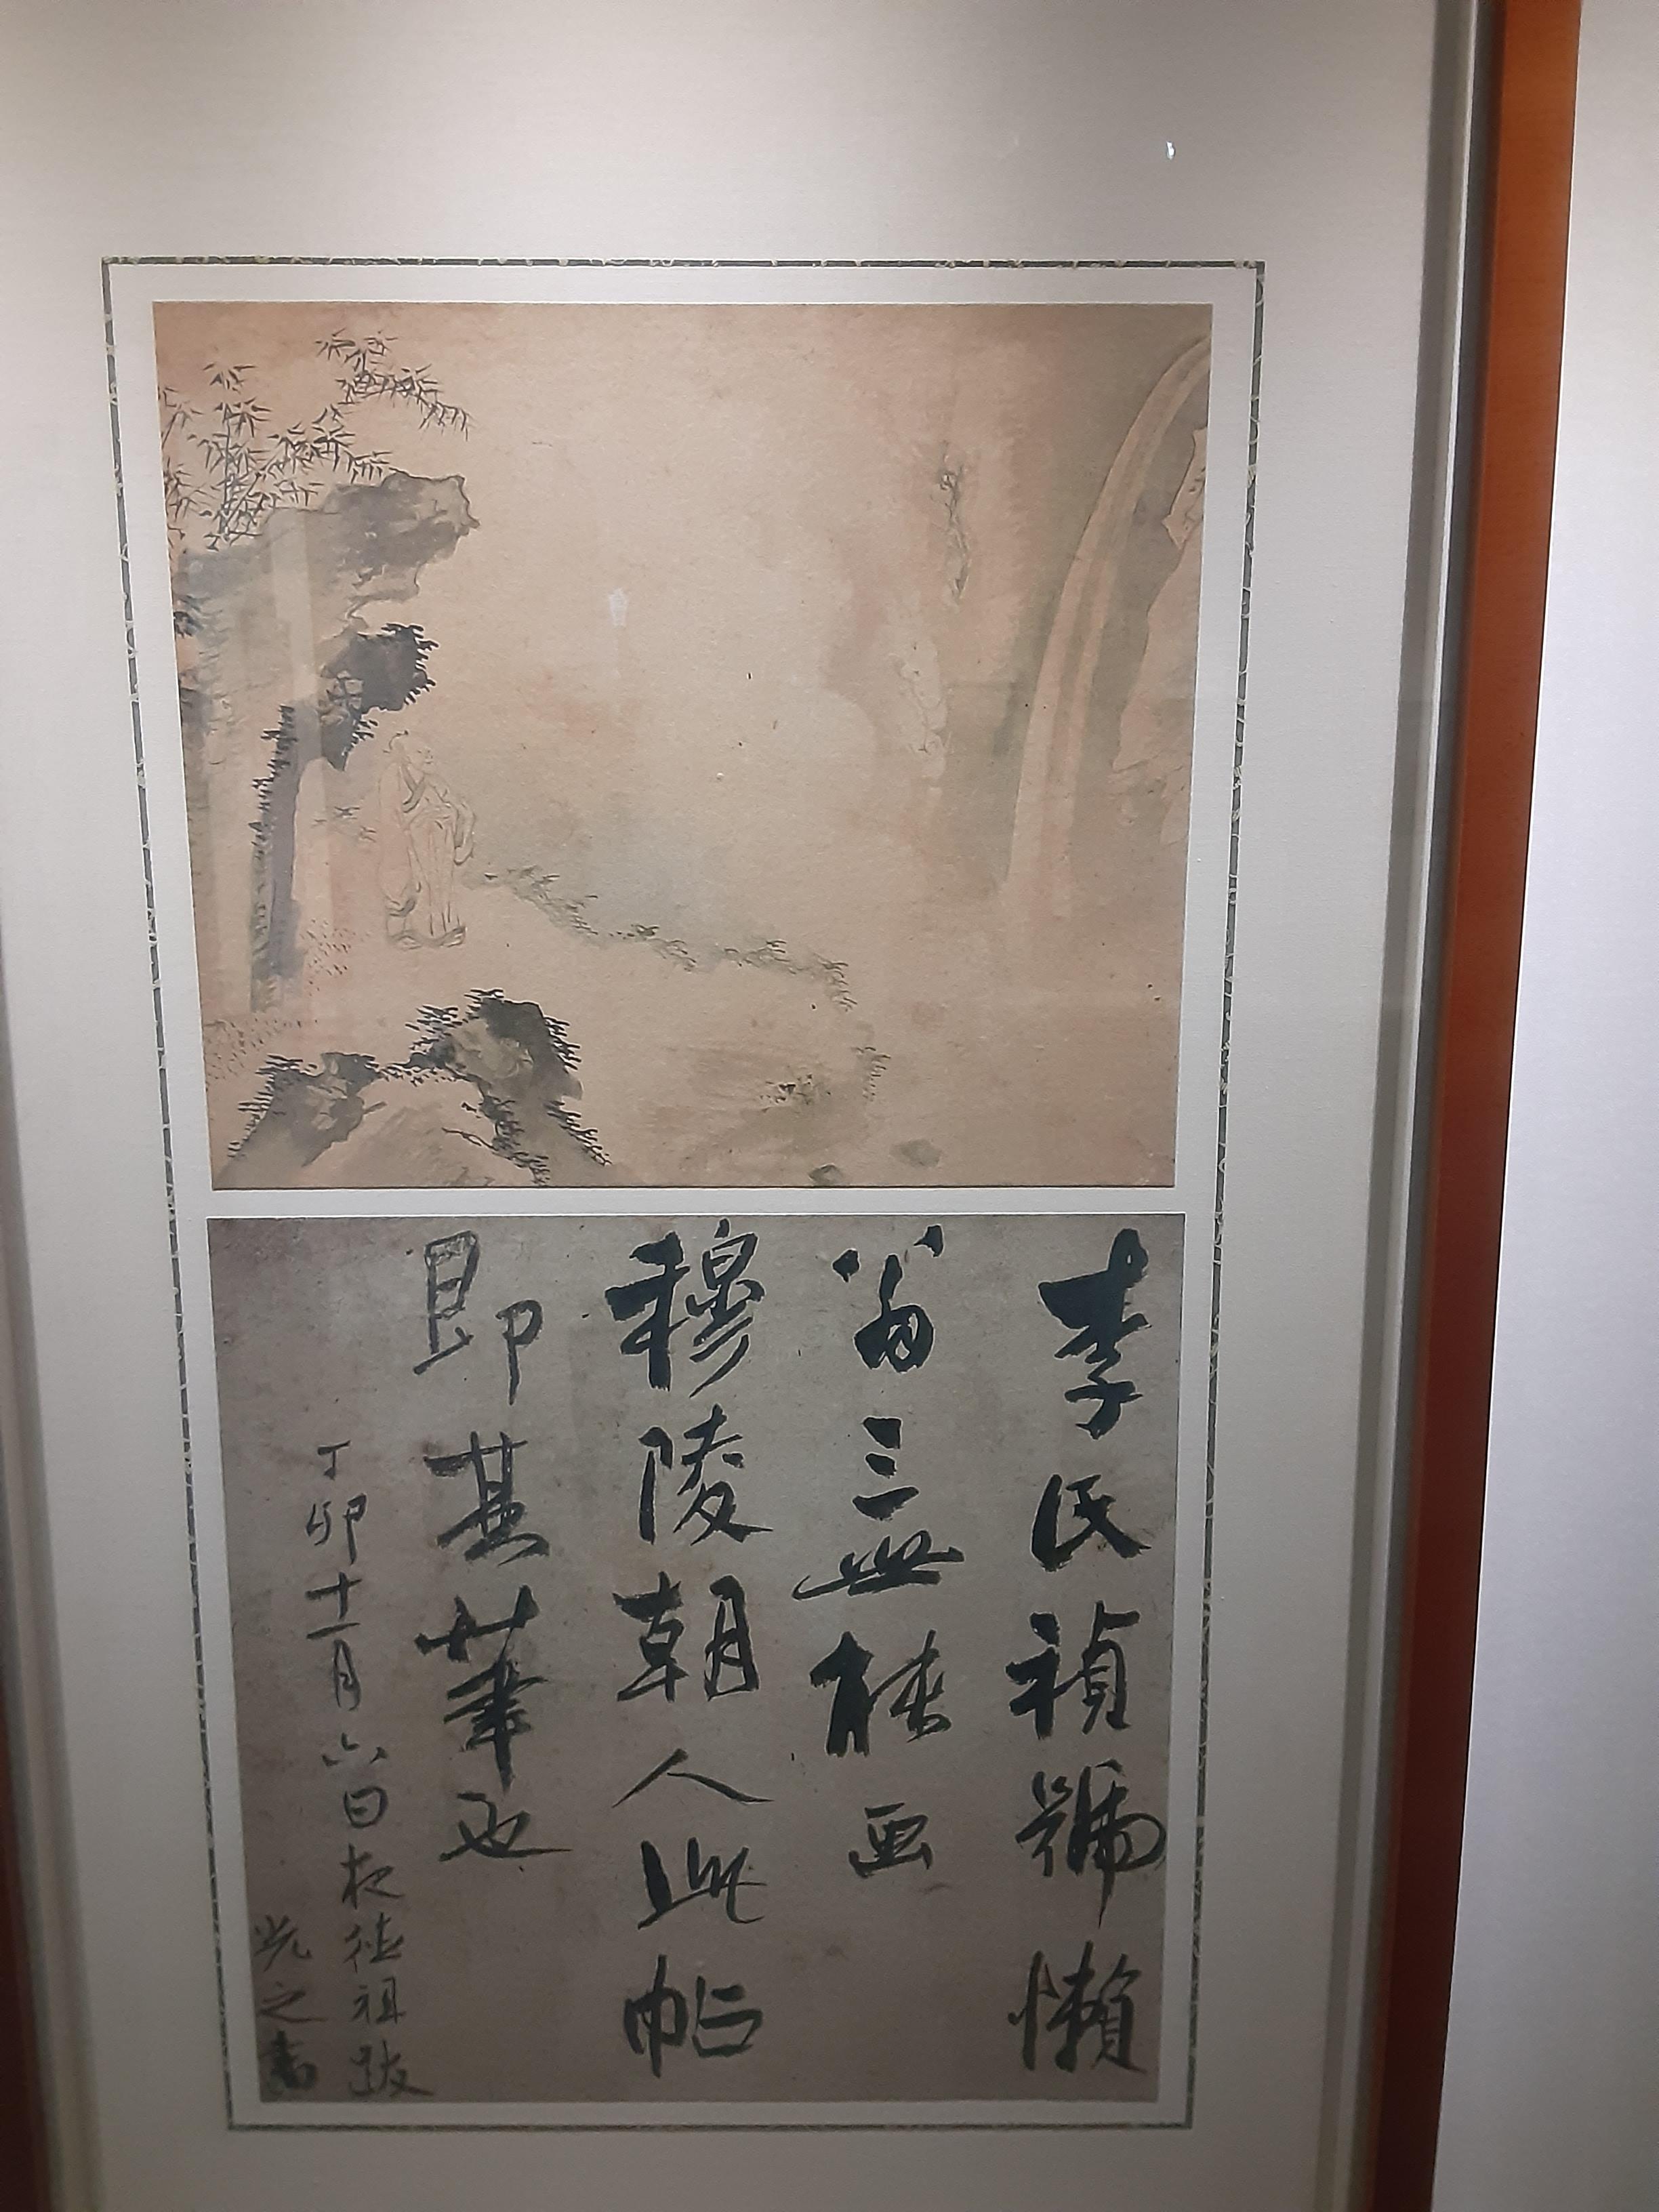 李氏禎號懶
翁三𠀤能画
穆陵朝人此帖
即其筆也
丁卯十一月六日松徒祖跋
光之書